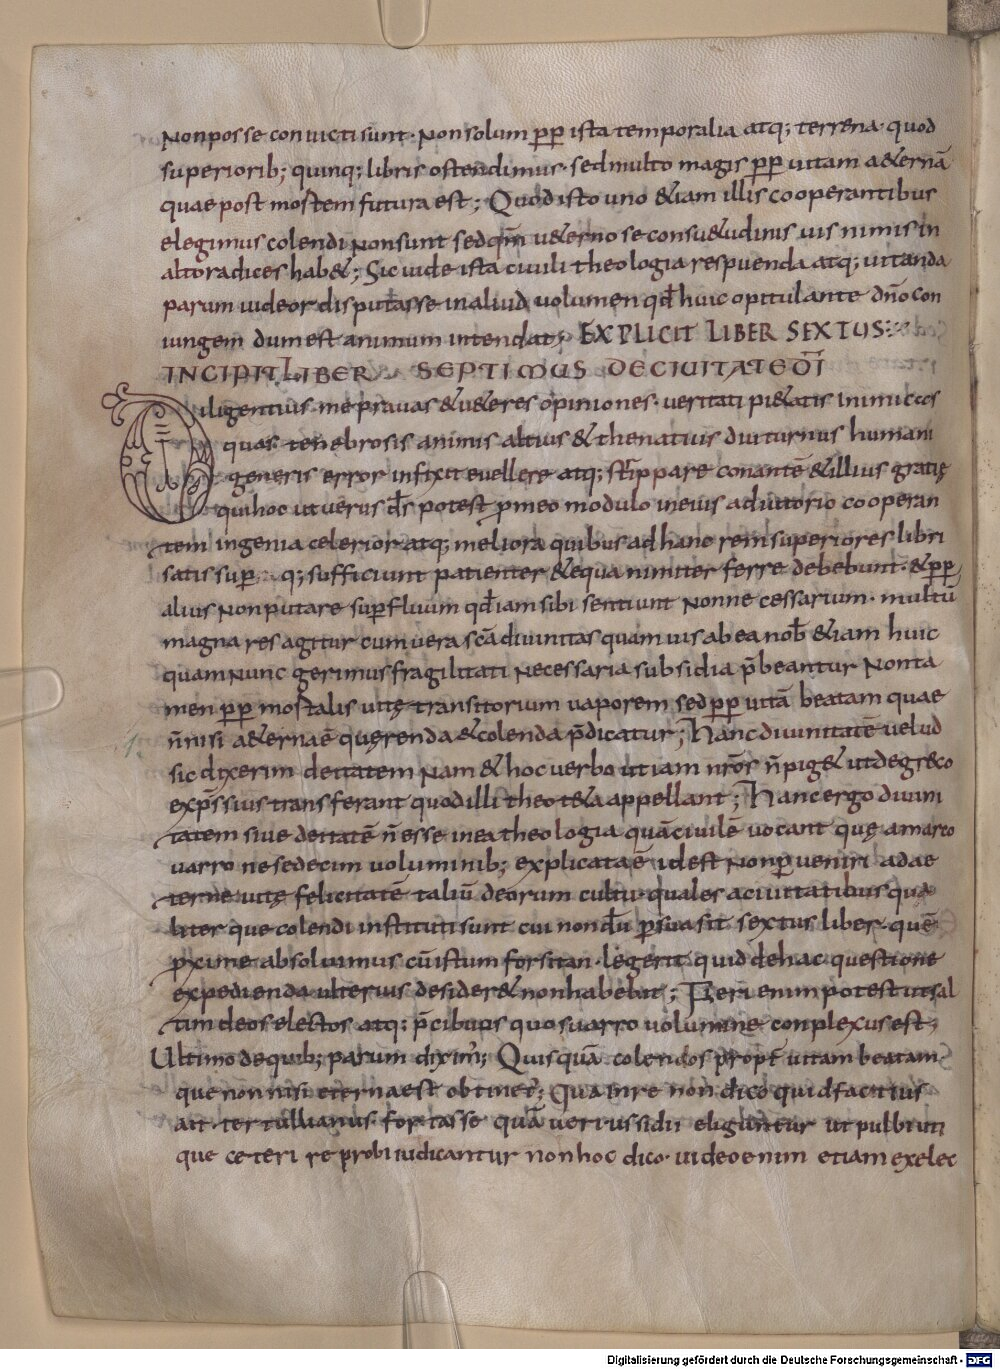 Nonposse conuicti sunt· Non solum pp̄ ista temporalia atq; terrena· quod
superiorib; quinq; libris ostendimus· sed multo magis pp̄ uitam a&ernā
quae post mortem futura est; Quod isto uno &iam illis cooperantibus
elegimus colendi Nonsunt sed qm̄ u&erno se consu&udinis uis nimis in
alto radices hab&; Sic uide ista ciuili theologia respuenda atq; uitanda
parum uideor disputasse in aliud uolumen qd̄ huic opitulante dn̄o con
iungem dum est animum intendat; EXPLICIT LIBER SEXTUS:
INCIPIT LIBER SEPTIMUS DE CIUITATE DĪ
Diligentius me prauas &u&eres opiniones· ueritati pi&atis inimicas
quas tenebrosis animis altius & thenatius diuturnus humani
generis error infixit euellere atq; stirppare conantē &illius gratię
qui hoc ut uerus ds̄ potest p meo modulo in eius adiutorio cooperan
tem ingenia celerior atq; meliora quibus ad hanc rem superiores libri
satis sup q; sufficiunt patienter &equanimiter ferre debebunt· &pp̄
alius Non putare supfluum qd̄ iam sibi sentiunt Nonne cessarium· multū
magna res agitur cum uera scā diuinitas quam uis ab ea nob̄ &iam huic
quam Nunc gerimus fragilitati Necessaria subsidia p̄beantur Nonta
men pp̄ mortalis uitę transitorium uaporem sed pp̄ uitā beatam quae
n̄ nisi a&ernaē quęrenda &colenda p̄dicatur; Hanc diuinitatē uel ud
sic dixerim deitatem Nam & hoc uerbo uti iam nr̄os n̄ pig& ut de greco
exp̄ssius transferant quod illi theot&a appellant; Hanc ergo diuini
tatem siue deitatē n̄ esse in ea theologia quā ciuilē uocant quę a marco
uarro ne sedecim uoluminib; explicata ē id est Non p ueniri ad ae
ternę uitę felicitatē taliū deorum cultu· quales a ciuitatibus qua
liter que colendi instituti sunt cui nondū psuasit sextus liber· quē
pxime absoluimus cū istum forsitan· legerit quid de hac questione
expedienda ulterius desider& non habebit; Fieri enim potest ut sal
tim deos electos atq; p̄cibuos quos uarro uolumine conplexus est,
Ultimo de quib; parum diximꝰ; Quisquā colendos propt̄ uitam beatam·
que non nisi eterna est obtinet̄; Qua in re non dico quid facitius
ait· tertullianus· fortasse quā uerius si dii eliguntur ut pulbi uti
que ceteri reprobi iudicantur non hoc dico· uideo enim etiam ex elec
Digitalisierung gefördert durch die Deutsche Forschungsgemeinschaft - DFG